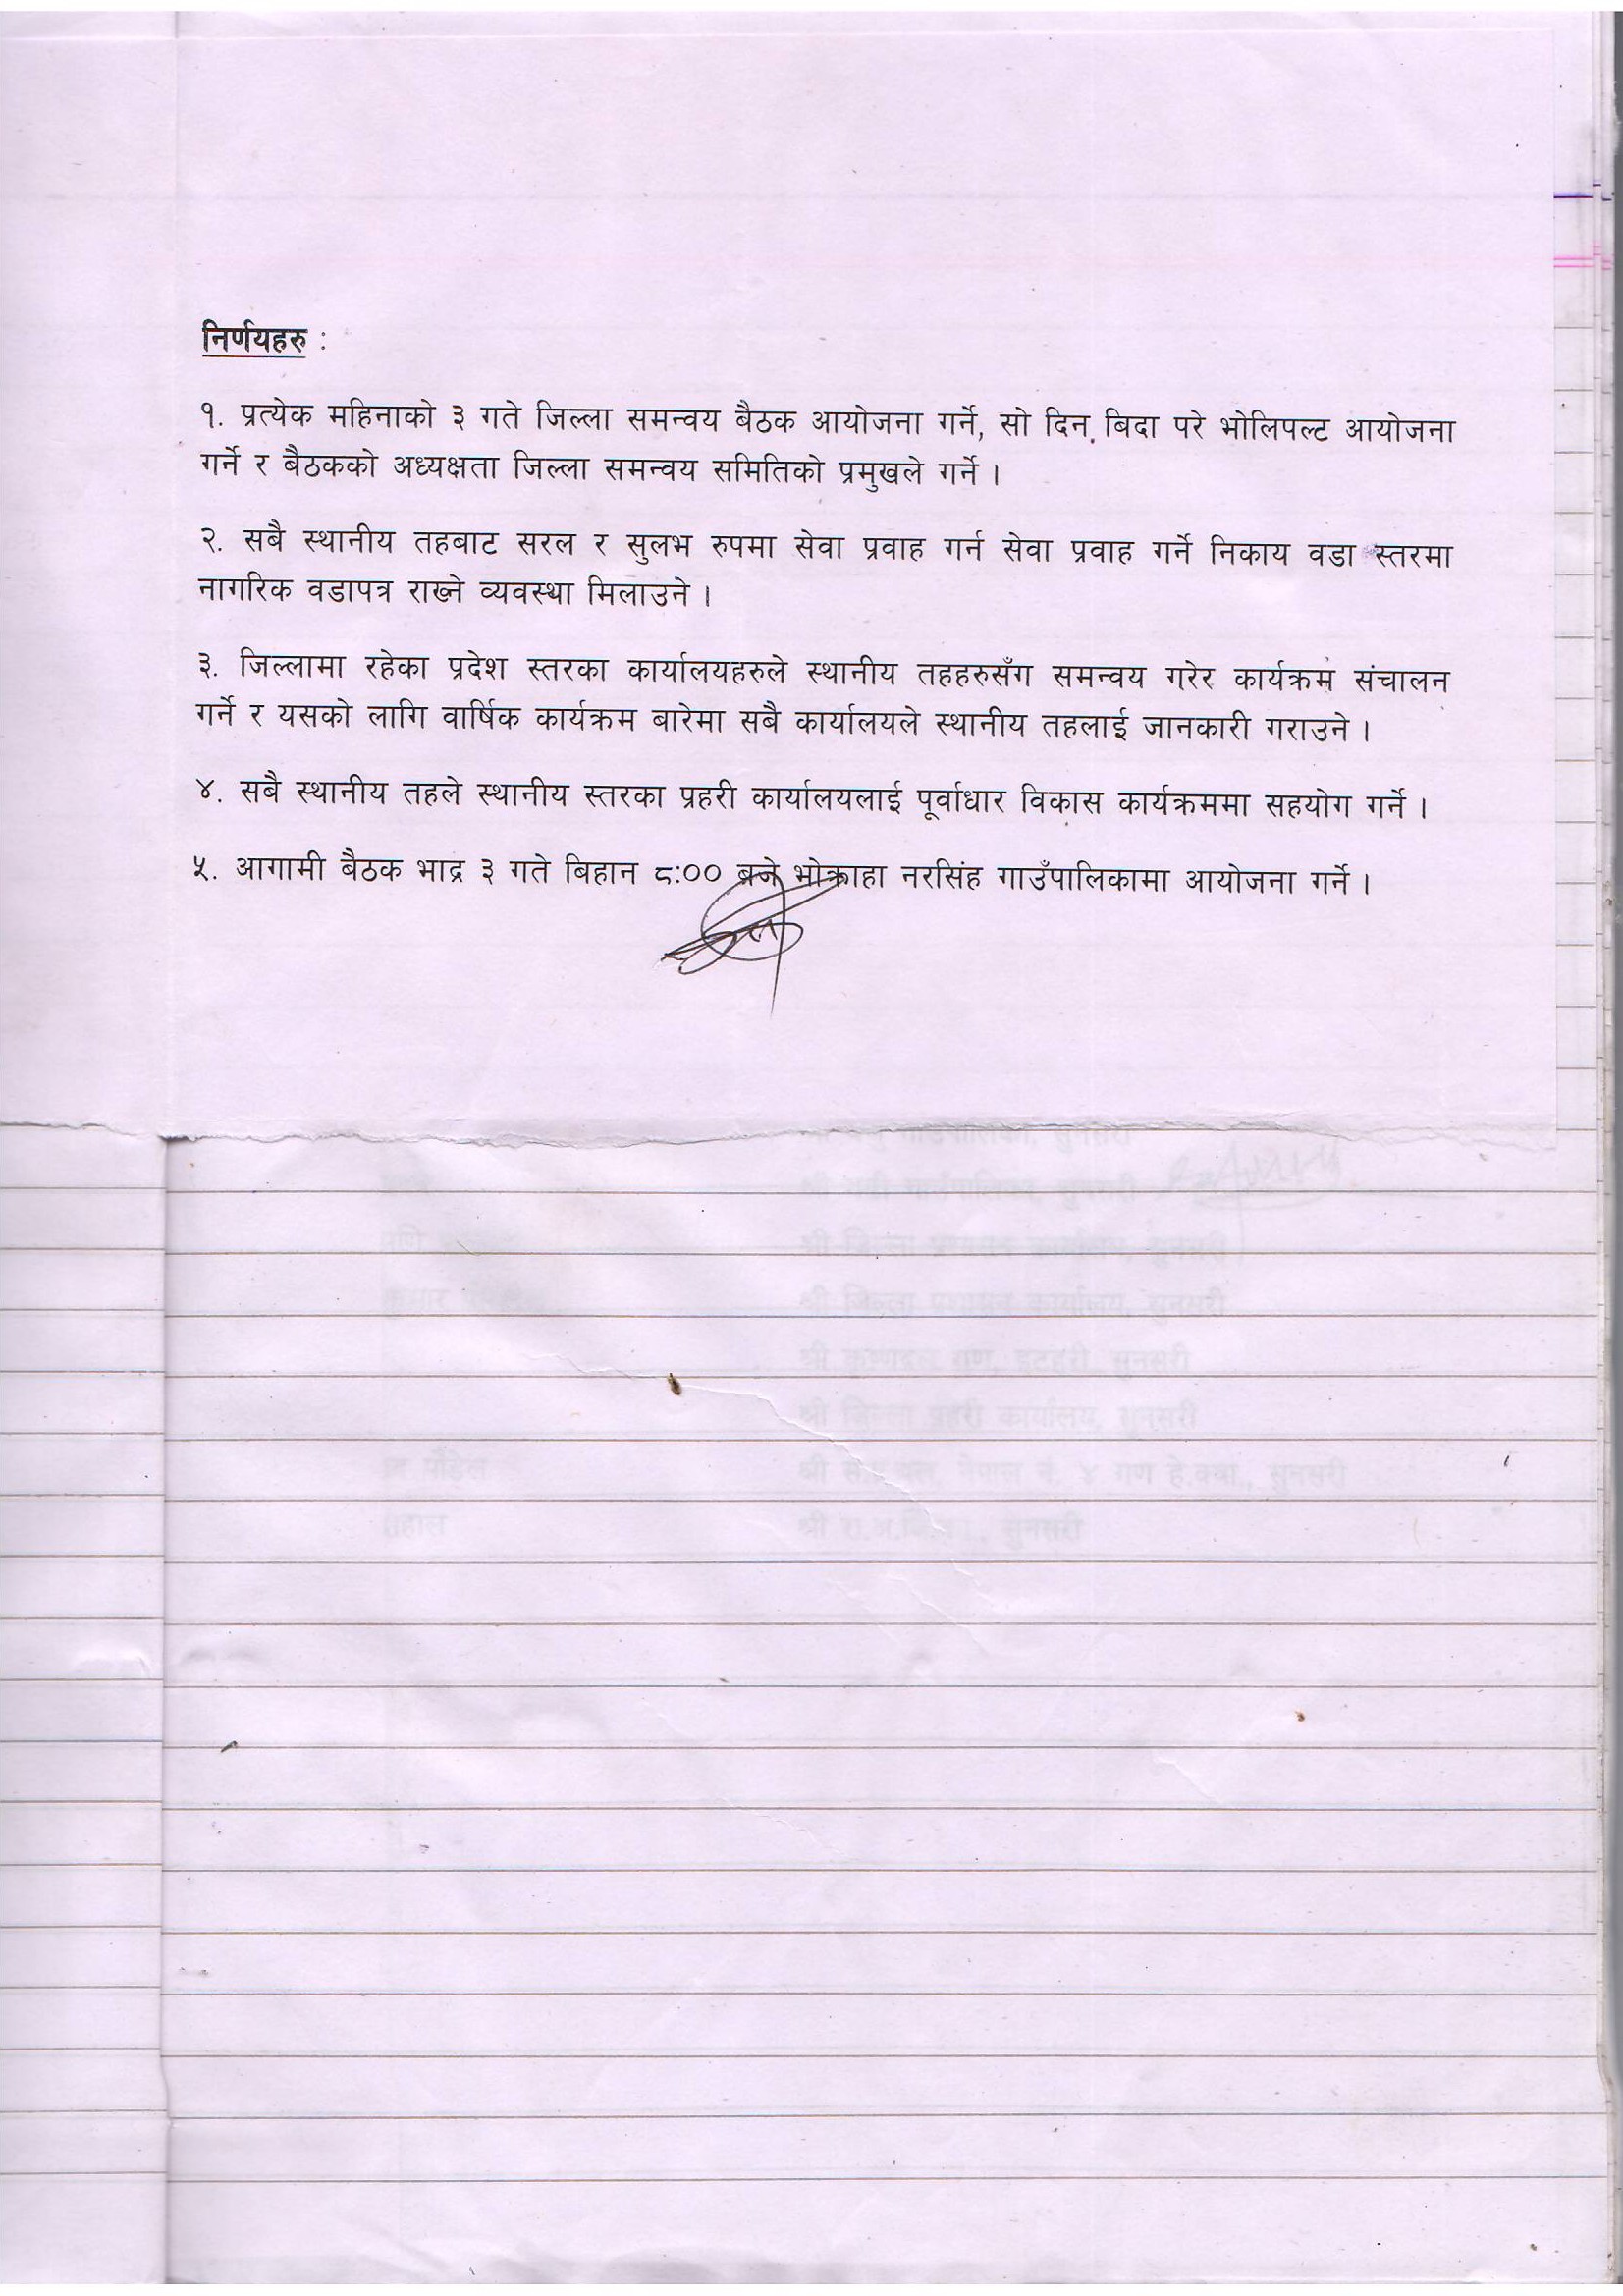 निर्णयहरु :
१. प्रत्येक महिनाको ३ गते जिल्ला समन्वय बैठक आयोजना गर्ने, सो दिन बिदा परे भोलिपल्ट आयोजना
गर्ने र बैठकको अध्यक्षता जिल्ला समन्वय समितिको प्रमुखले गर्ने ।
२. सबै स्थानीय तहबाट सरल र सुलभ रुपमा सेवा प्रवाह गर्न सेवा प्रवाह गर्ने निकाय वडा स्तरमा
नागरिक वडापत्र राख्ने व्यवस्था मिलाउने ।
३. जिल्लामा रहेका प्रदेश स्तरका कार्यालयहरुले स्थानीय तहहरुसँग समन्वय गरेर कार्यक्रम संचालन
गर्ने र यसको लागि वार्षिक कार्यक्रम बारेमा सबै कार्यालयले स्थानीय तहलाई जानकारी गराउने ।
४. सबै स्थानीय तहले स्थानीय स्तरका प्रहरी कार्यालयलाई पूर्वाधार विकास कार्यक्रममा सहयोग गर्ने ।
५. आगामी बैठक भाद्र ३ गते बिहान ८:०० बजे भोक्राहा नरसिंह गाउँपालिकामा आयोजना गर्ने ।
गाउँपालिका, सुनसरी
श्री गाउँपालिका, सुनसरी
श्री जिल्ला प्रशासन कार्यालय, सुनसरी
कुमार श्री जिल्ला प्रशासन कार्यालय, सुनसरी
श्री गण, इटहरी, सुनसरी
श्री जिल्ला प्रहरी कार्यालय, सुनसरी
पौडेल श्री नेपाल नं. ४ गण हे.क्वा., सुनसरी
श्री सुनसरी